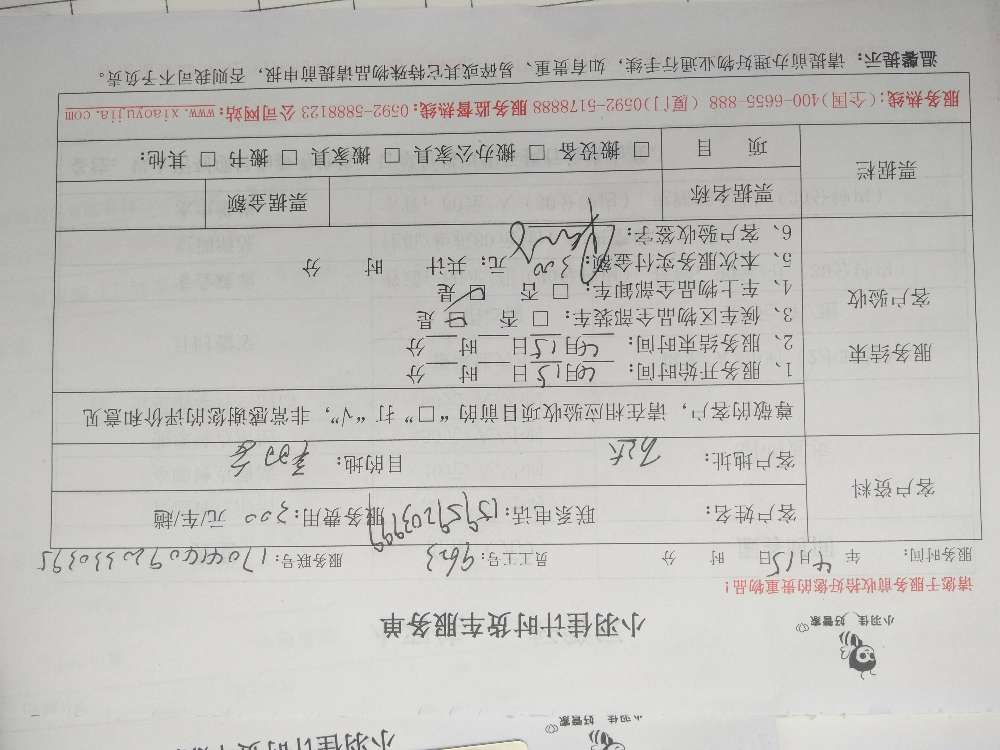 小羽佳 好管家
小羽佳计时货车服务单
请您于服务前收拾好您的贵重物品！
服务时间： 年 4月15日 时 分 员工工号：9623 服务联号：1704440920330395
客户资料
客户姓名： 联系电话：13959203999 服务费用：300 元/车/趟
客户地址：万达 目的地：
尊敬的客户，请在相应验收项目前的“□”打“√”，非常感谢您的评价和意见
服务结束
客户验收
1、服务开始时间： 4月15日 时 分
2、服务结束时间： 4月15日 时 分
3、候车区物品全部装车：□ 否 □ 是
4、车上物品全部卸车：□ 否 □ 是
5、本次服务支付金额：300 元；共计 时 分
6、客户验收签字：
票据栏
票据名称 票据金额
项 目 □ 搬设备 □ 搬办公家具 □ 搬家具 □ 搬书 □ 其他：
服务热线：(全国)400-6655-888 (厦门)0592-5178888 服务监督热线：0592-5888123 公司网站：www.xiaoyujia.com
温馨提示：请提前办理好物业通行手续，如有贵重、易碎或其它特殊物品请提前申报，否则我司不予负责。
小羽佳 好管家
小羽佳计时货车服